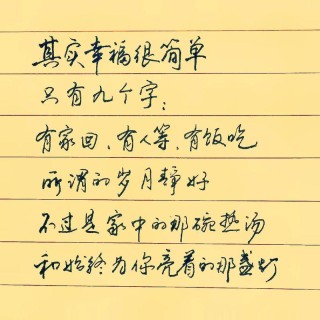 其实幸福很简单
只有九个字：
有家回、有人等、有饭吃
所谓的岁月静好
不过是家中的那碗热汤
和始终为你亮着的那盏灯